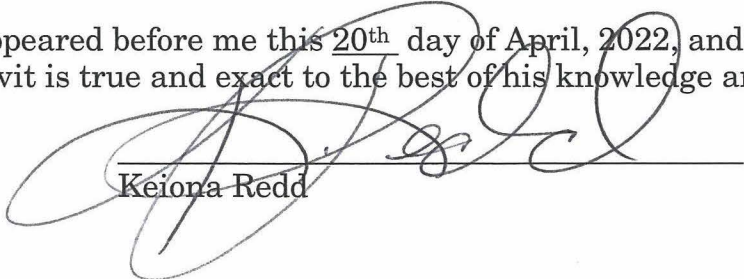 peared before me this 20th day of April, 2022, and
vit is true and exact to the best of his knowledge a
Keiona Redd